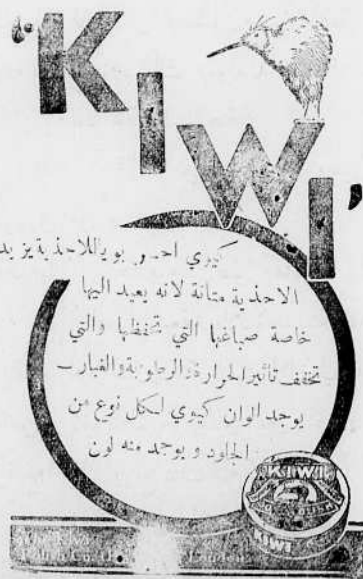 "KIWI"
كيوي احسن بويا للاحذية يزيد
الاحذية متانة لانه يعيد اليها
خاصة صباغها التي تحفظها والتي
تخفف تأثير الحرارة والرطوبة والغبار —
يوجد الوان كيوي لكل نوع من
الجلود ويوجد منه لون
KIWI
KIWI
The Kiwi
Polish Co. London